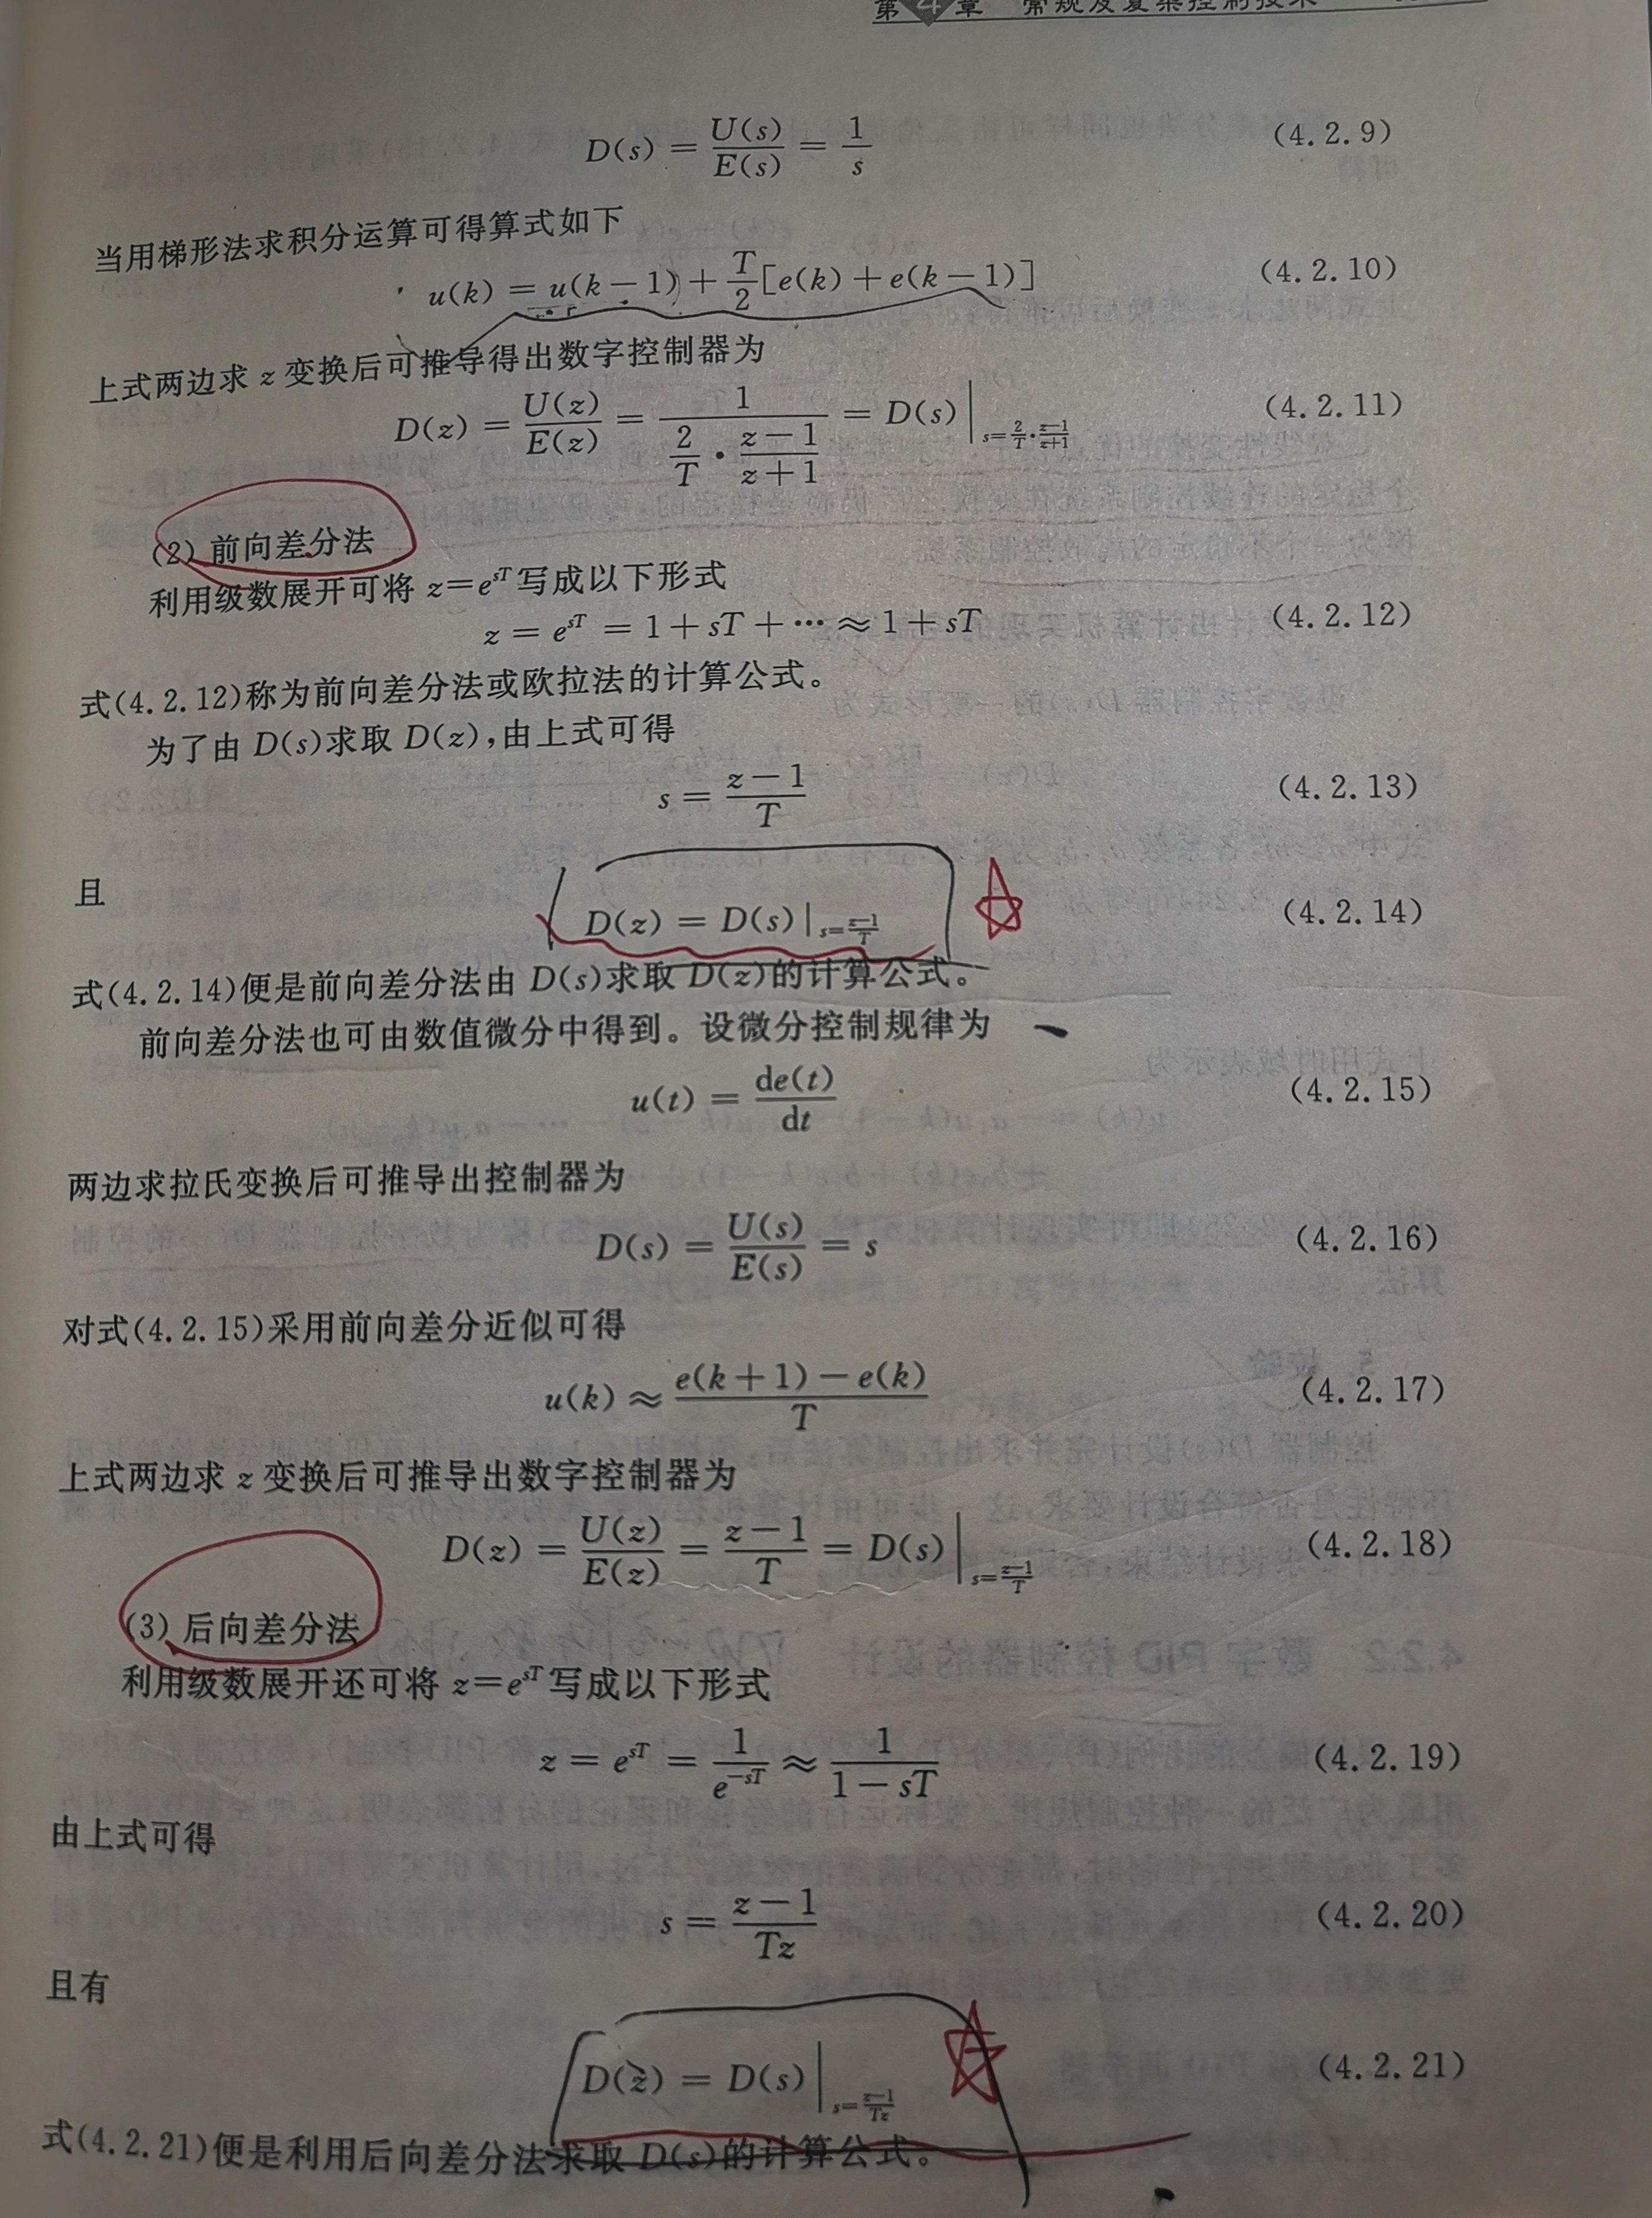 第4章 常规及复杂控制技术
D(s) = U(s)/E(s) = 1/s (4.2.9)
当用梯形法求积分运算可得算式如下
u(k) = u(k-1) + T/2[e(k) + e(k-1)] (4.2.10)
上式两边求 z 变换后可推导得出数字控制器为
D(z) = U(z)/E(z) = 1/(2/T · (z-1)/(z+1)) = D(s)|s=2/T·(z-1)/(z+1) (4.2.11)
(2) 前向差分法
利用级数展开可将 z=e^sT 写成以下形式
z = e^sT = 1 + sT + ⋯ ≈ 1 + sT (4.2.12)
式(4.2.12)称为前向差分法或欧拉法的计算公式。
为了由 D(s)求取 D(z),由上式可得
s = (z-1)/T (4.2.13)
且
D(z) = D(s)|s=(z-1)/T (4.2.14)
式(4.2.14)便是前向差分法由 D(s)求取 D(z)的计算公式。
前向差分法也可由数值微分中得到。设微分控制规律为
u(t) = de(t)/dt (4.2.15)
两边求拉氏变换后可推导出控制器为
D(s) = U(s)/E(s) = s (4.2.16)
对式(4.2.15)采用前向差分近似可得
u(k) ≈ (e(k+1) - e(k))/T (4.2.17)
上式两边求 z 变换后可推导出数字控制器为
D(z) = U(z)/E(z) = (z-1)/T = D(s)|s=(z-1)/T (4.2.18)
(3) 后向差分法
利用级数展开还可将 z=e^sT 写成以下形式
z = e^sT = 1/e^-sT ≈ 1/(1-sT) (4.2.19)
由上式可得
s = (z-1)/Tz (4.2.20)
且有
D(z) = D(s)|s=(z-1)/Tz (4.2.21)
式(4.2.21)便是利用后向差分法求取 D(s)的计算公式。